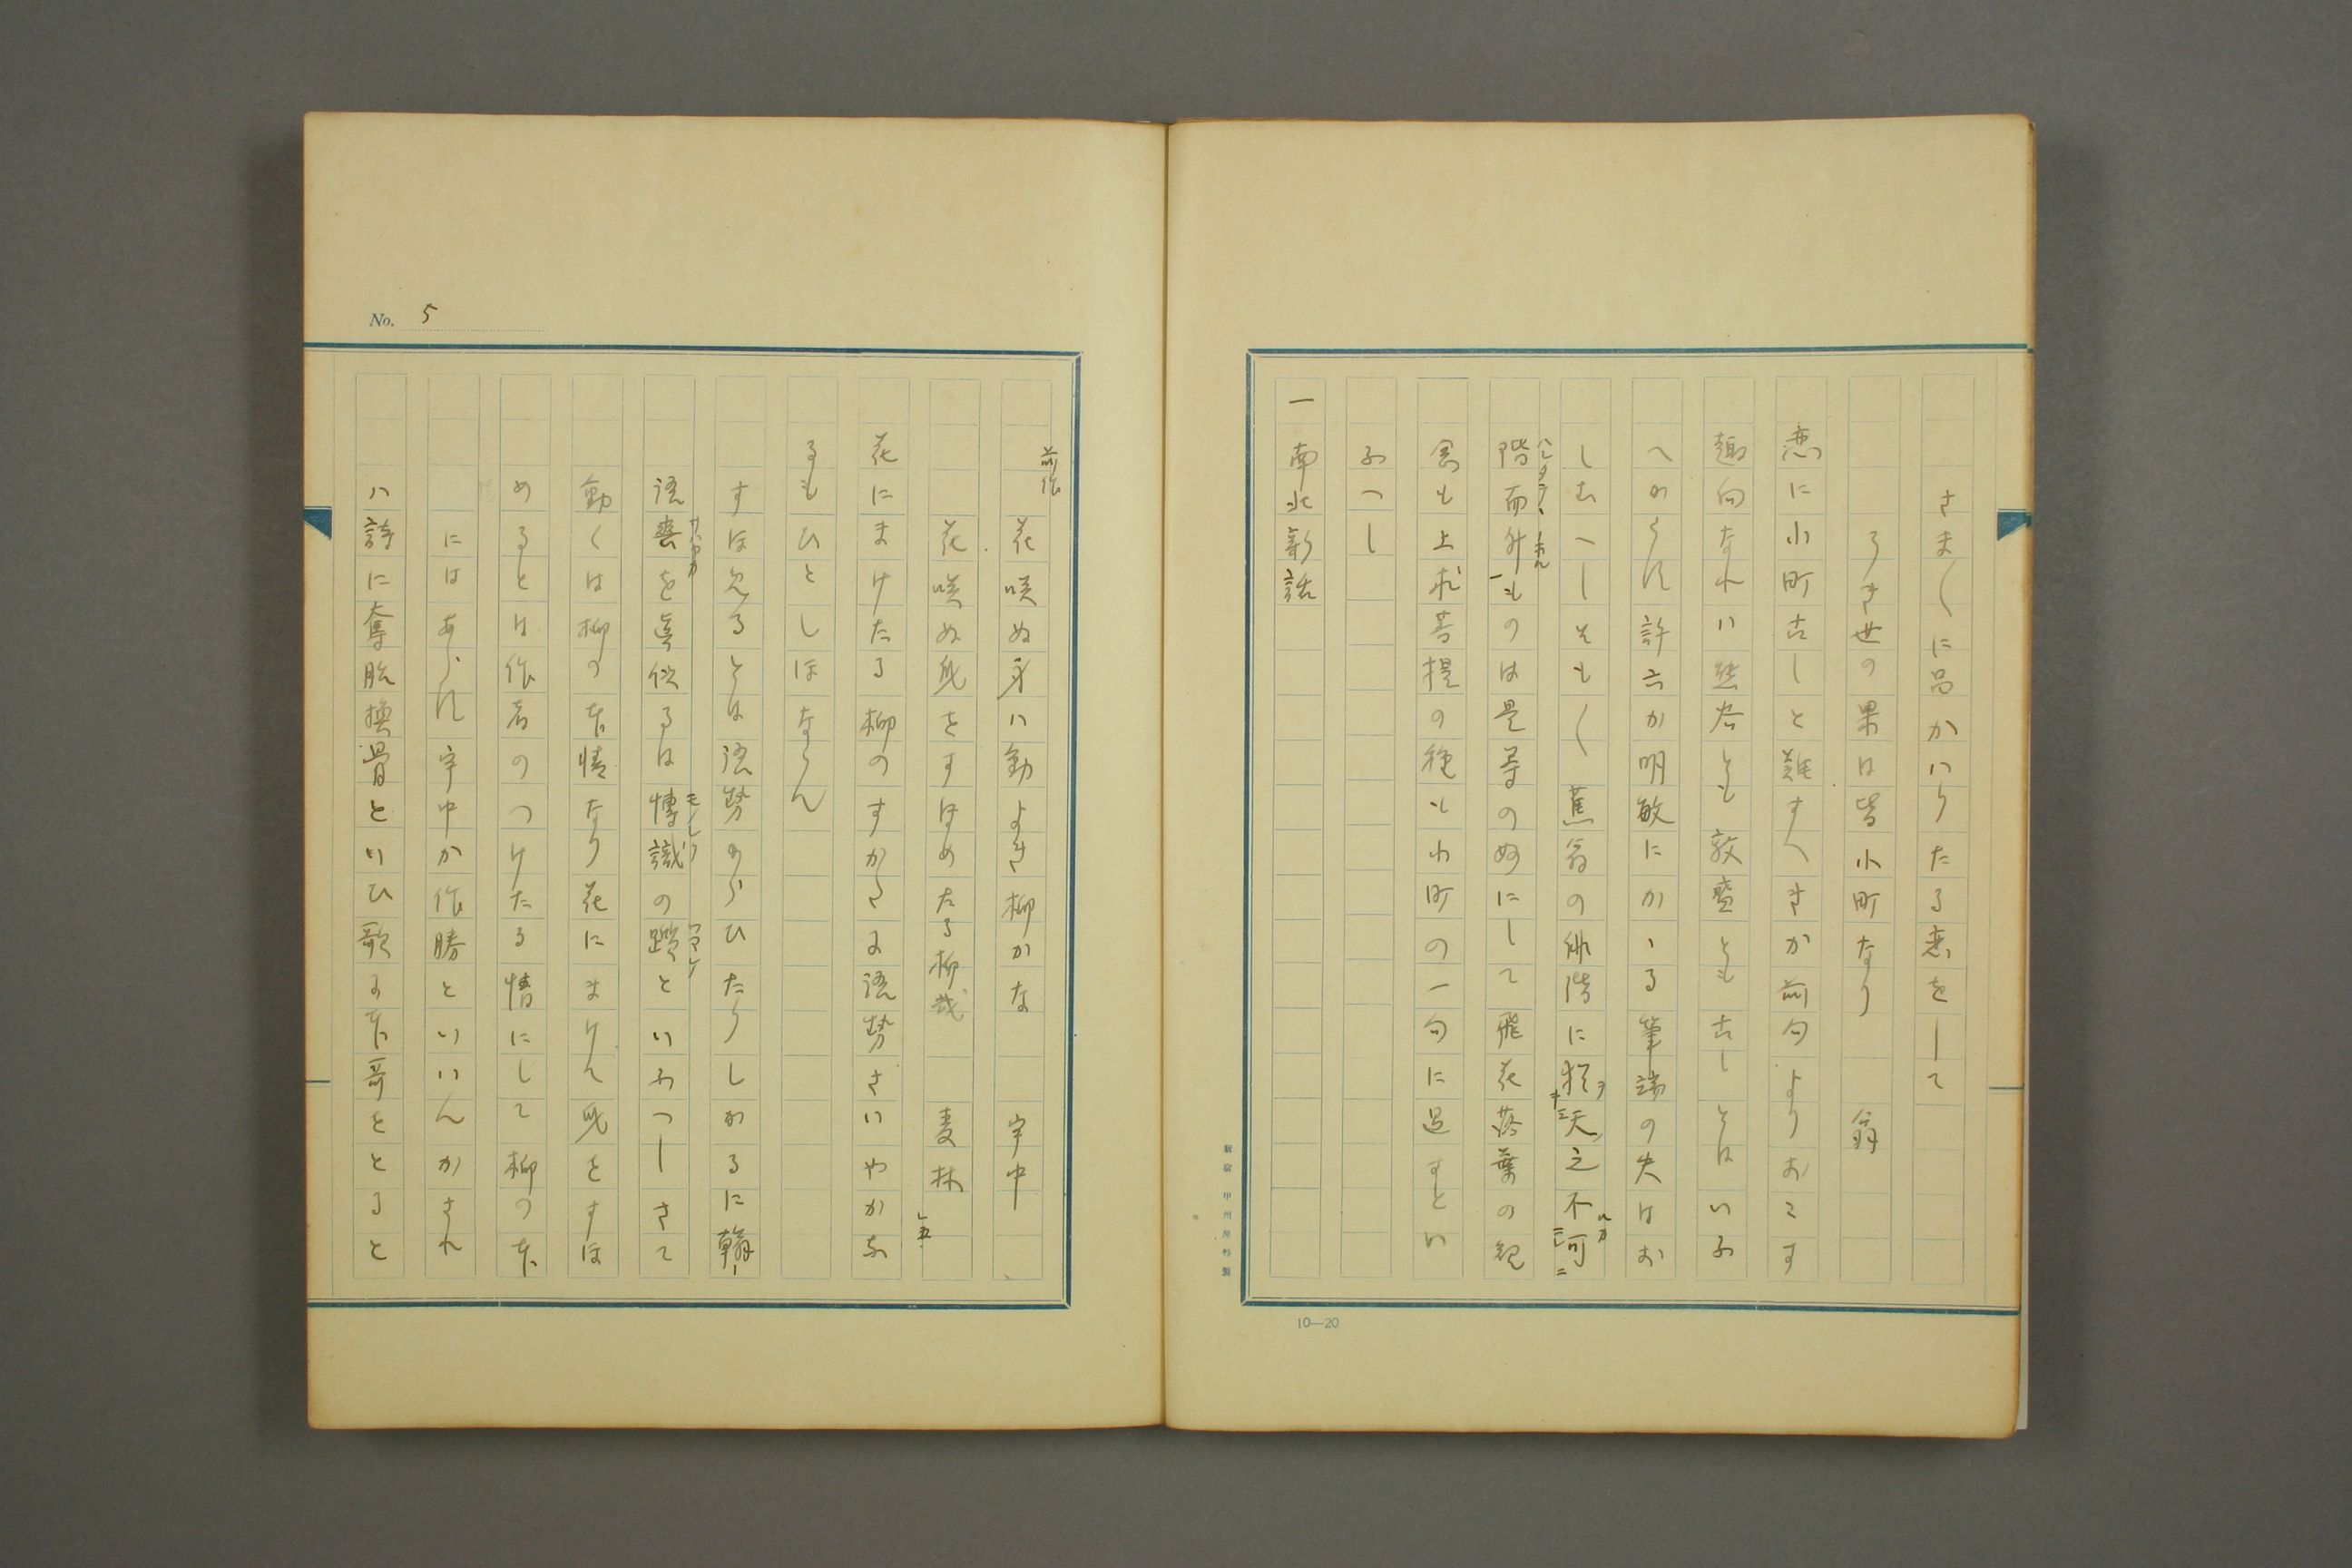 さま〱に品かハりたる恋をして
うき世の果は皆小町なり 翁
恋に小町古しと難すへきか前句よりおこす
趣向なれハ然共とも敦盛とも古しとはいふ
へからす許六か明敏にかゝる筆端の失はお
しむへしそも〱蕉翁の俳階に猶天之不可
階而升ものは是等のぬにして飛花落葉の観
念も上求菩提の種も小町の一句に過すとい
ふへし
一 南北新話
10—20
No. 5
前作 花咲ぬ身ハ動よき柳かな 宇中
花咲ぬ身をすほめたる柳哉 麦林
花にまけたる柳のすかたに語勢さハやかな
るもひとしほならん
すほめるとは語勢からひたりしかるに翰
語爽を真似るは博識の躓といふへしさて
動くは柳の本情なり花にまけん身をすほ
めるとは作者のつけたる情にして柳の本
にはあらす宇中か作勝といハんかされ
ハ詩に奪胎換骨といひ歌に本哥をとると